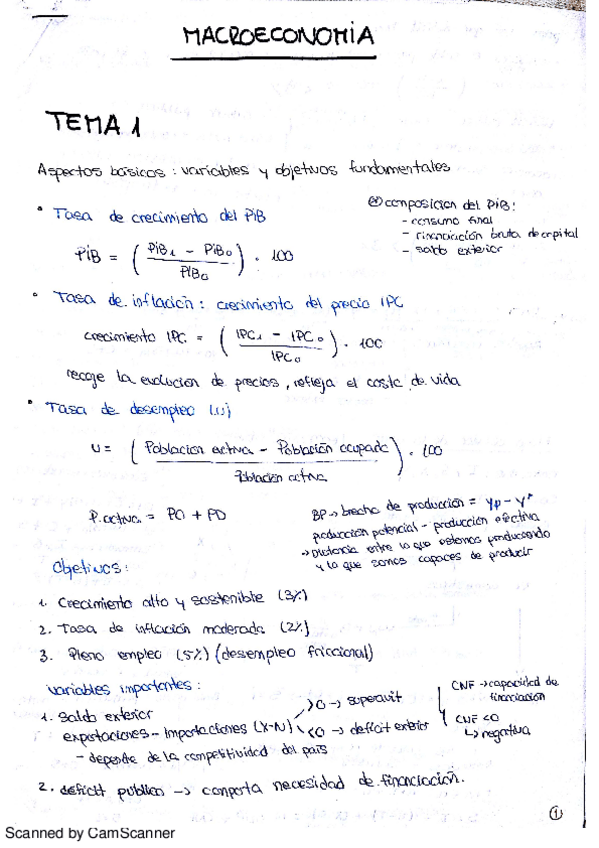 MACROECONOMÍA
TEMA 1
Aspectos básicos: variables y objetivos fundamentales
• Tasa de crecimiento del PIB
PIB = ( PIB₁ - PIB₀ / PIB₀ ) · 100
composición del PIB:
- consumo final
- financiación bruta de capital
- saldo exterior
• Tasa de inflación: crecimiento del precio IPC
crecimiento IPC = ( IPC₁ - IPC₀ / IPC₀ ) · 100
recoge la evolución de precios, refleja el coste de vida
• Tasa de desempleo (u)
u = ( Población activa - Población ocupada / Población activa ) · 100
P. activa = PO + PD
BP → brecha de producción = yp - y*
producción potencial - producción efectiva
→ Distancia entre lo que estamos produciendo
y lo que somos capaces de producir
Objetivos:
1. Crecimiento alto y sostenible (3%)
2. Tasa de inflación moderada (2%)
3. Pleno empleo (5%) (desempleo friccional)
Variables importantes:
1. Saldo exterior
exportaciones - Importaciones (X-N)
>0 → superavit
<0 → deficit exterior
CNF → capacidad de financiación
CNF <0
↳ negativa
- depende de la competitividad del país
2. déficit público → comporta necesidad de financiación.
1
Scanned by CamScanner